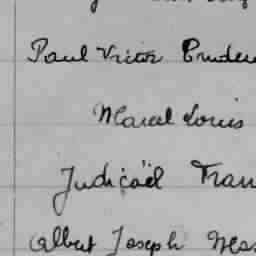 Paul Victor Pruden
Marcel Louis
Judicaël Fran
Albert Joseph Ma